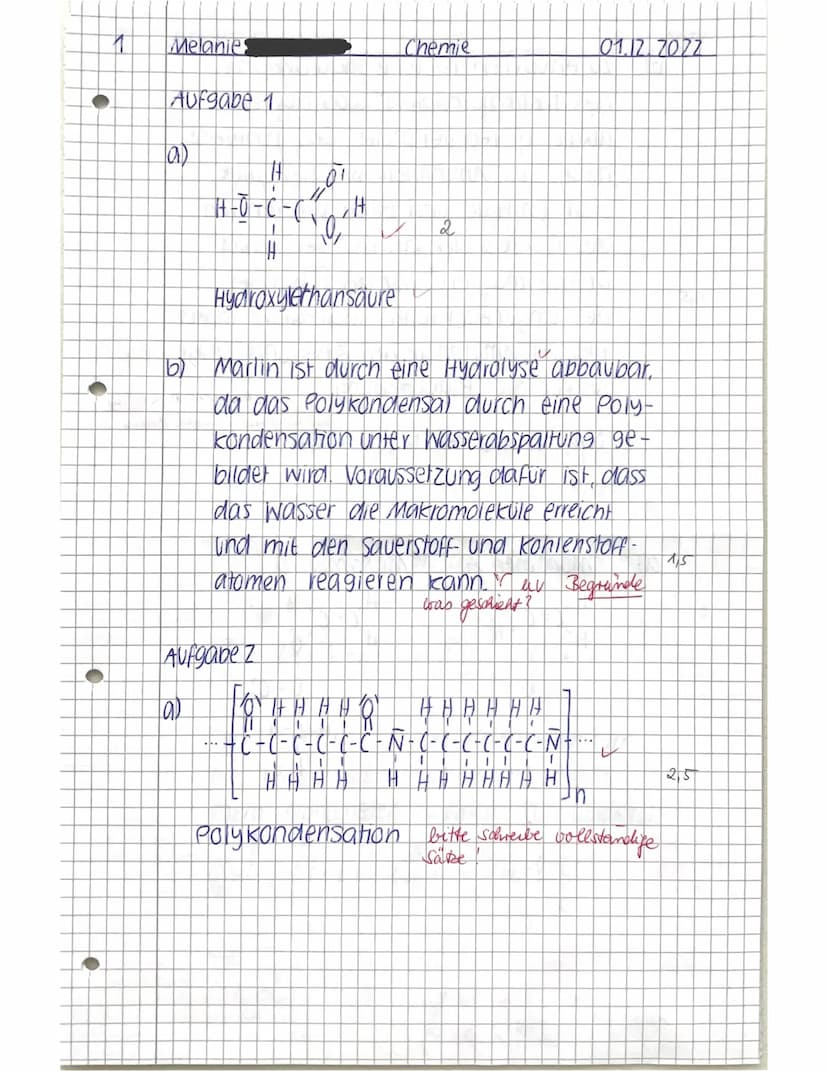 1 Melanie Chemie 01.12.2022
Aufgabe 1
a)
H O
H-O-C-C H
H O
✓ 2
Hydroxylethansäure ✓
b) Marlin ist durch eine Hydrolyse ✓ abbaubar,
da das Polykondensat durch eine Poly-
kondensation unter Wasserabspaltung ge-
bildet wird. Voraussetzung dafür ist, dass
das Wasser die Makromoleküle erreicht
und mit den Sauerstoff- und Kohlenstoff-
atomen reagieren kann. Begründe 1,5
was geschieht?
Aufgabe 2
a)
O H H H H O H H H H H H
... C-C-C-C-C-C-N-C-C-C-C-C-C-N ... ✓
H H H H H H H H H H H H
n 2,5
Polykondensation bitte schreibe vollständige
Sätze!